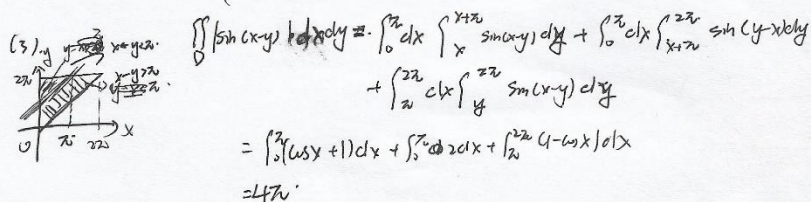 (3).
y
2π
x-y>π.
0 π 2π x
∬_D |sin(x-y)|dxdy = ∫_0^π dx ∫_x^{x+π} sin(x-y)dy + ∫_0^π dx ∫_{x+π}^{2π} sin(y-x)dy
+ ∫_π^{2π} dx ∫_y^{2π} sin(x-y)dy
= ∫_0^π (cosx+1)dx + ∫_0^π 2dx + ∫_π^{2π} (1-cosx)dx
=4π.